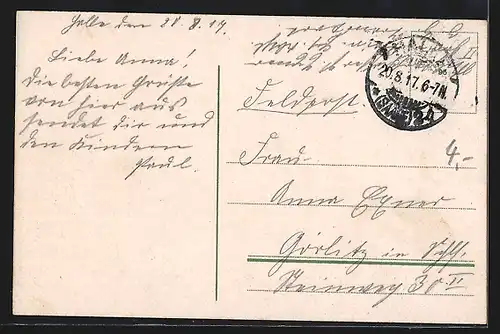 Halle den 20.8.17.
Liebe Anna!
Die besten Grüsse
von hier aus
sendet dir und
den Kindern
Paul.
Feldpost.
HALLE
20.8.17. 6-7N.
* (SAALE) 2
4,-
Frau
Anna Exner
Görlitz in Schl.
Steinweg 30 II